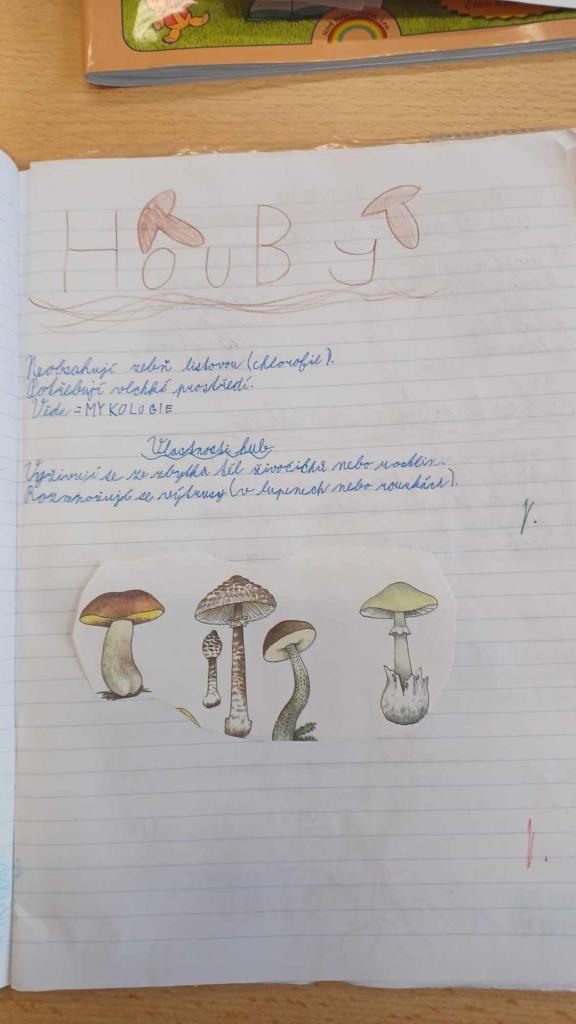 HouBy
Neobsahují zeleň listovou (chlorofil).
Potřebují vlhké prostředí.
Věda = MYKOLOGIE
Vlastnosti hub
Vyživují se ze zbytků těl živočichů nebo rostlin.
Rozmnožují se výtrusy (v lupenech nebo rourkách).